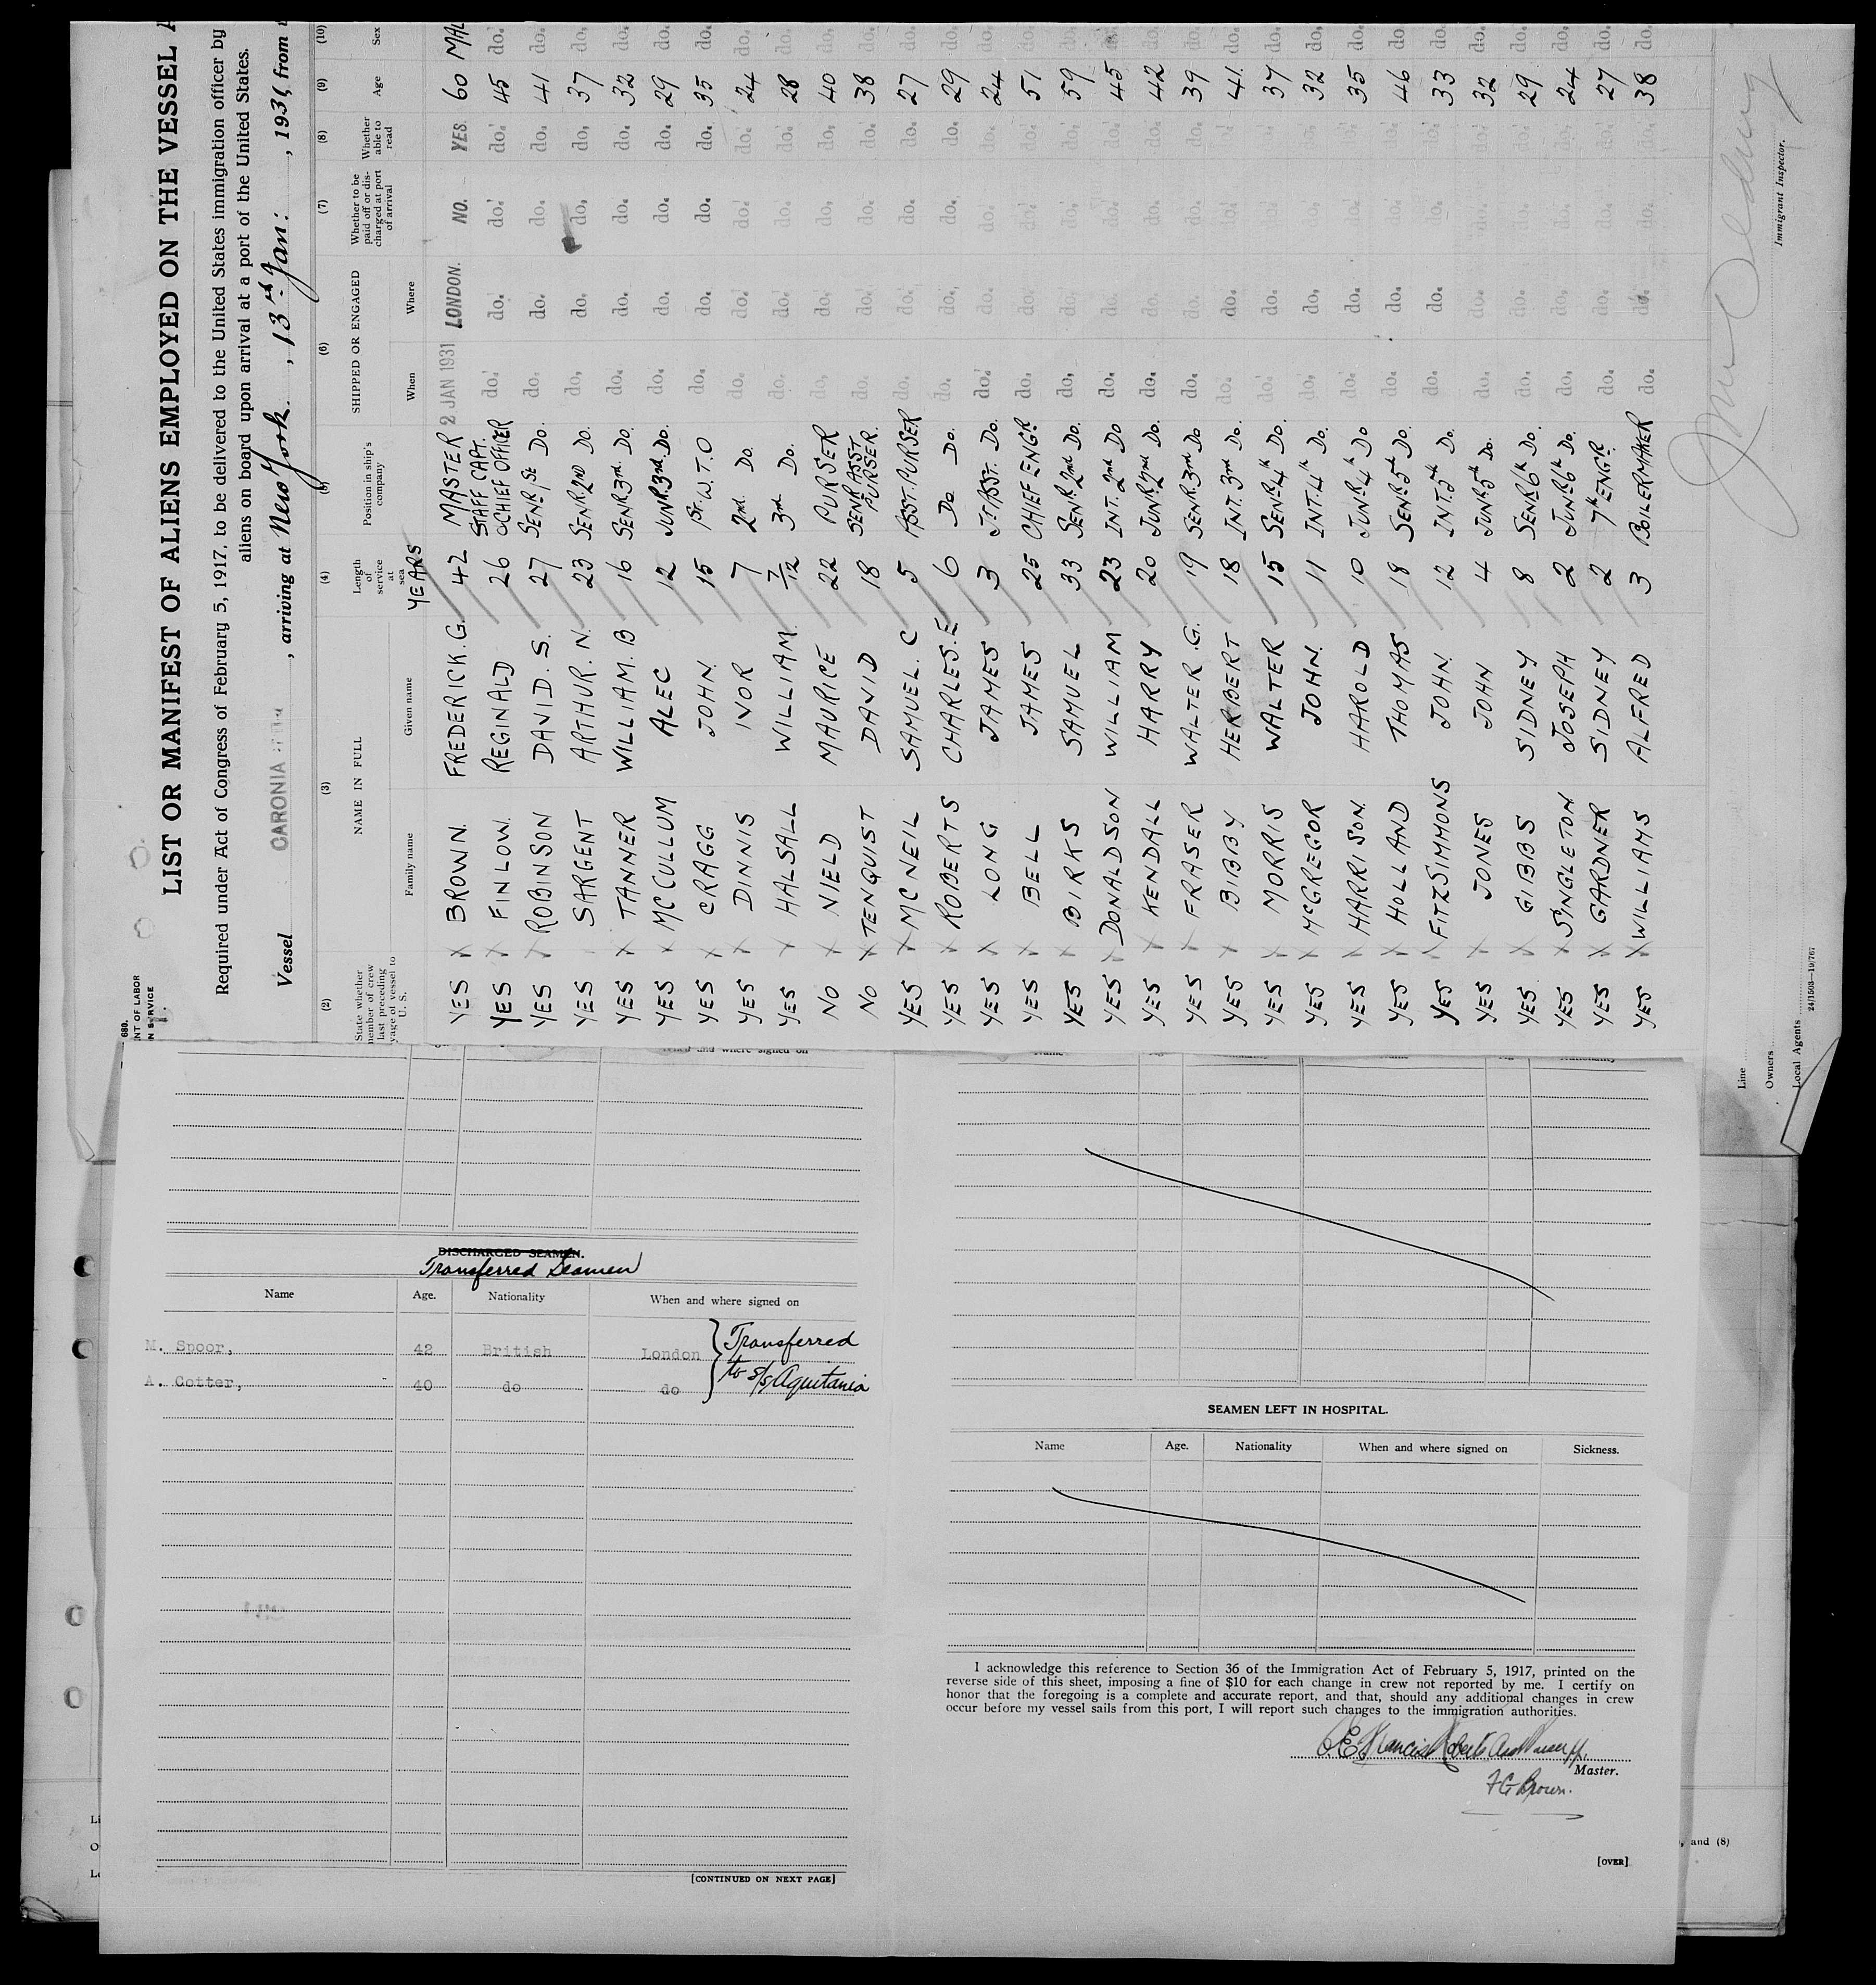 680.
NT OF LABOR
N SERVICE
LIST OR MANIFEST OF ALIENS EMPLOYED ON THE VESSEL A
Required under Act of Congress of February 5, 1917, to be delivered to the United States immigration officer by
aliens on board upon arrival at a port of the United States.
Vessel CARONIA, arriving at New York, 13th Jan:, 1931, from
(2) (3) (4) (5) (6) (7) (8) (9) (10)
State whether member of crew last preceding voyage of vessel to U. S. NAME IN FULL Family name Given name Length of service at sea YEARS Position in ship's company SHIPPED OR ENGAGED When Where Whether to be paid off or discharged at port of arrival Whether able to read Age Sex
YES X BROWN. FREDERICK. G. 42 MASTER 2 JAN 1931 LONDON. NO. YES. 60 MAL
YES X FINLOW. REGINALD 26 STAFF CAPT. CHIEF OFFICER do. do. do. do. 45 do.
YES X ROBINSON DAVID. S. 27 SENR 1st Do. do. do. do. do. 41 do.
YES SARGENT ARTHUR. N. 23 SENR. 2ND Do. do. do. do. do. 37 do.
YES X TANNER WILLIAM. B 16 SENR 3rd. Do. do. do. do. do. 32 do.
YES X MCCULLUM ALEC 12 JUNR. 3rd. Do. do. do. do. do. 29 do.
YES X CRAGG JOHN. 15 1st. W. T. O do. do. do. do. 35 do.
YES X DINNIS IVOR 7 2nd. Do. do. do. do. do. 24 do.
YES X HALSALL WILLIAM. 7/12 3rd Do. do. do. do. do. 28 do.
NO X NIELD MAURICE 22 PURSER do. do. do. do. 40 do.
NO X TENQUIST DAVID 18 SENR ASST PURSER. do. do. do. do. 38 do.
YES X MCNEIL SAMUEL. C 5 ASST. PURSER do. do. do. do. 27 do.
YES X ROBERTS CHARLES. E 6 Do Do. do. do. do. do. 29 do.
YES X LONG JAMES 3 Jr ASST. Do. do. do. do. do. 24 do.
YES X BELL JAMES 25 CHIEF ENGR do. do. do. do. 51 do.
YES X BIRKS SAMUEL 33 SENR 2nd Do. do. do. do. do. 59 do.
YES X DONALDSON WILLIAM 23 INT. 2nd Do do. do. do. do. 45 do.
YES X KENDALL HARRY 20 JUNR 2nd Do. do. do. do. do. 42 do.
YES X FRASER WALTER. G. 19 SENR. 3rd Do do. do. do. do. 39 do.
YES X BIBBY HERBERT 18 INT. 3rd Do. do. do. do. do. 41. do.
YES X MORRIS WALTER 15 SENR. 4th Do. do. do. do. do. 37 do.
YES X McGREGOR JOHN. 11 INT. 4th Do. do. do. do. do. 32 do.
YES X HARRISON. HAROLD 10 JUNR 4th Do do. do. do. do. 35 do.
YES X HOLLAND THOMAS 18 SENR 5th Do. do. do. do. do. 46 do.
YES X FITZSIMMONS JOHN. 12 INT. 5th Do. do. do. do. do. 33 do.
YES X JONES JOHN 4 JUNR 5th Do. do. do. do. do. 32 do.
YES X GIBBS SIDNEY 8 SENR 6th Do. do. do. do. do. 29 do.
YES X SINGLETON JOSEPH 2 JUNR 6th Do. do. do. do. do. 24 do.
YES X GARDNER SIDNEY 2 7th ENGR. do. do. do. do. 27 do.
YES X WILLIAMS ALFRED 3 BOILERMAKER do. do. do. do. 38 do.
Immigrant Inspector.
Line
Owners
Local Agents
When and where signed on
DISCHARGED SEAMEN.
Transferred Seamen
Name Age. Nationality When and where signed on
M. Spoor, 42 British London Transferred
A. Cotter, 40 do do to s/s Aquitania
[CONTINUED ON NEXT PAGE]
SEAMEN LEFT IN HOSPITAL.
Name Age. Nationality When and where signed on Sickness.
I acknowledge this reference to Section 36 of the Immigration Act of February 5, 1917, printed on the
reverse side of this sheet, imposing a fine of $10 for each change in crew not reported by me. I certify on
honor that the foregoing is a complete and accurate report, and that, should any additional changes in crew
occur before my vessel sails from this port, I will report such changes to the immigration authorities.
Master.
F G Brown.
[OVER]
, and (8)